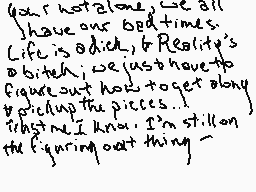 your not alone, we all
have our bad times.
Life is a dick, & Reality's
a bitch; we just have to
figure out how to get along
& pick up the pieces...
Trust me I know. I'm still on
the figuring out thing -